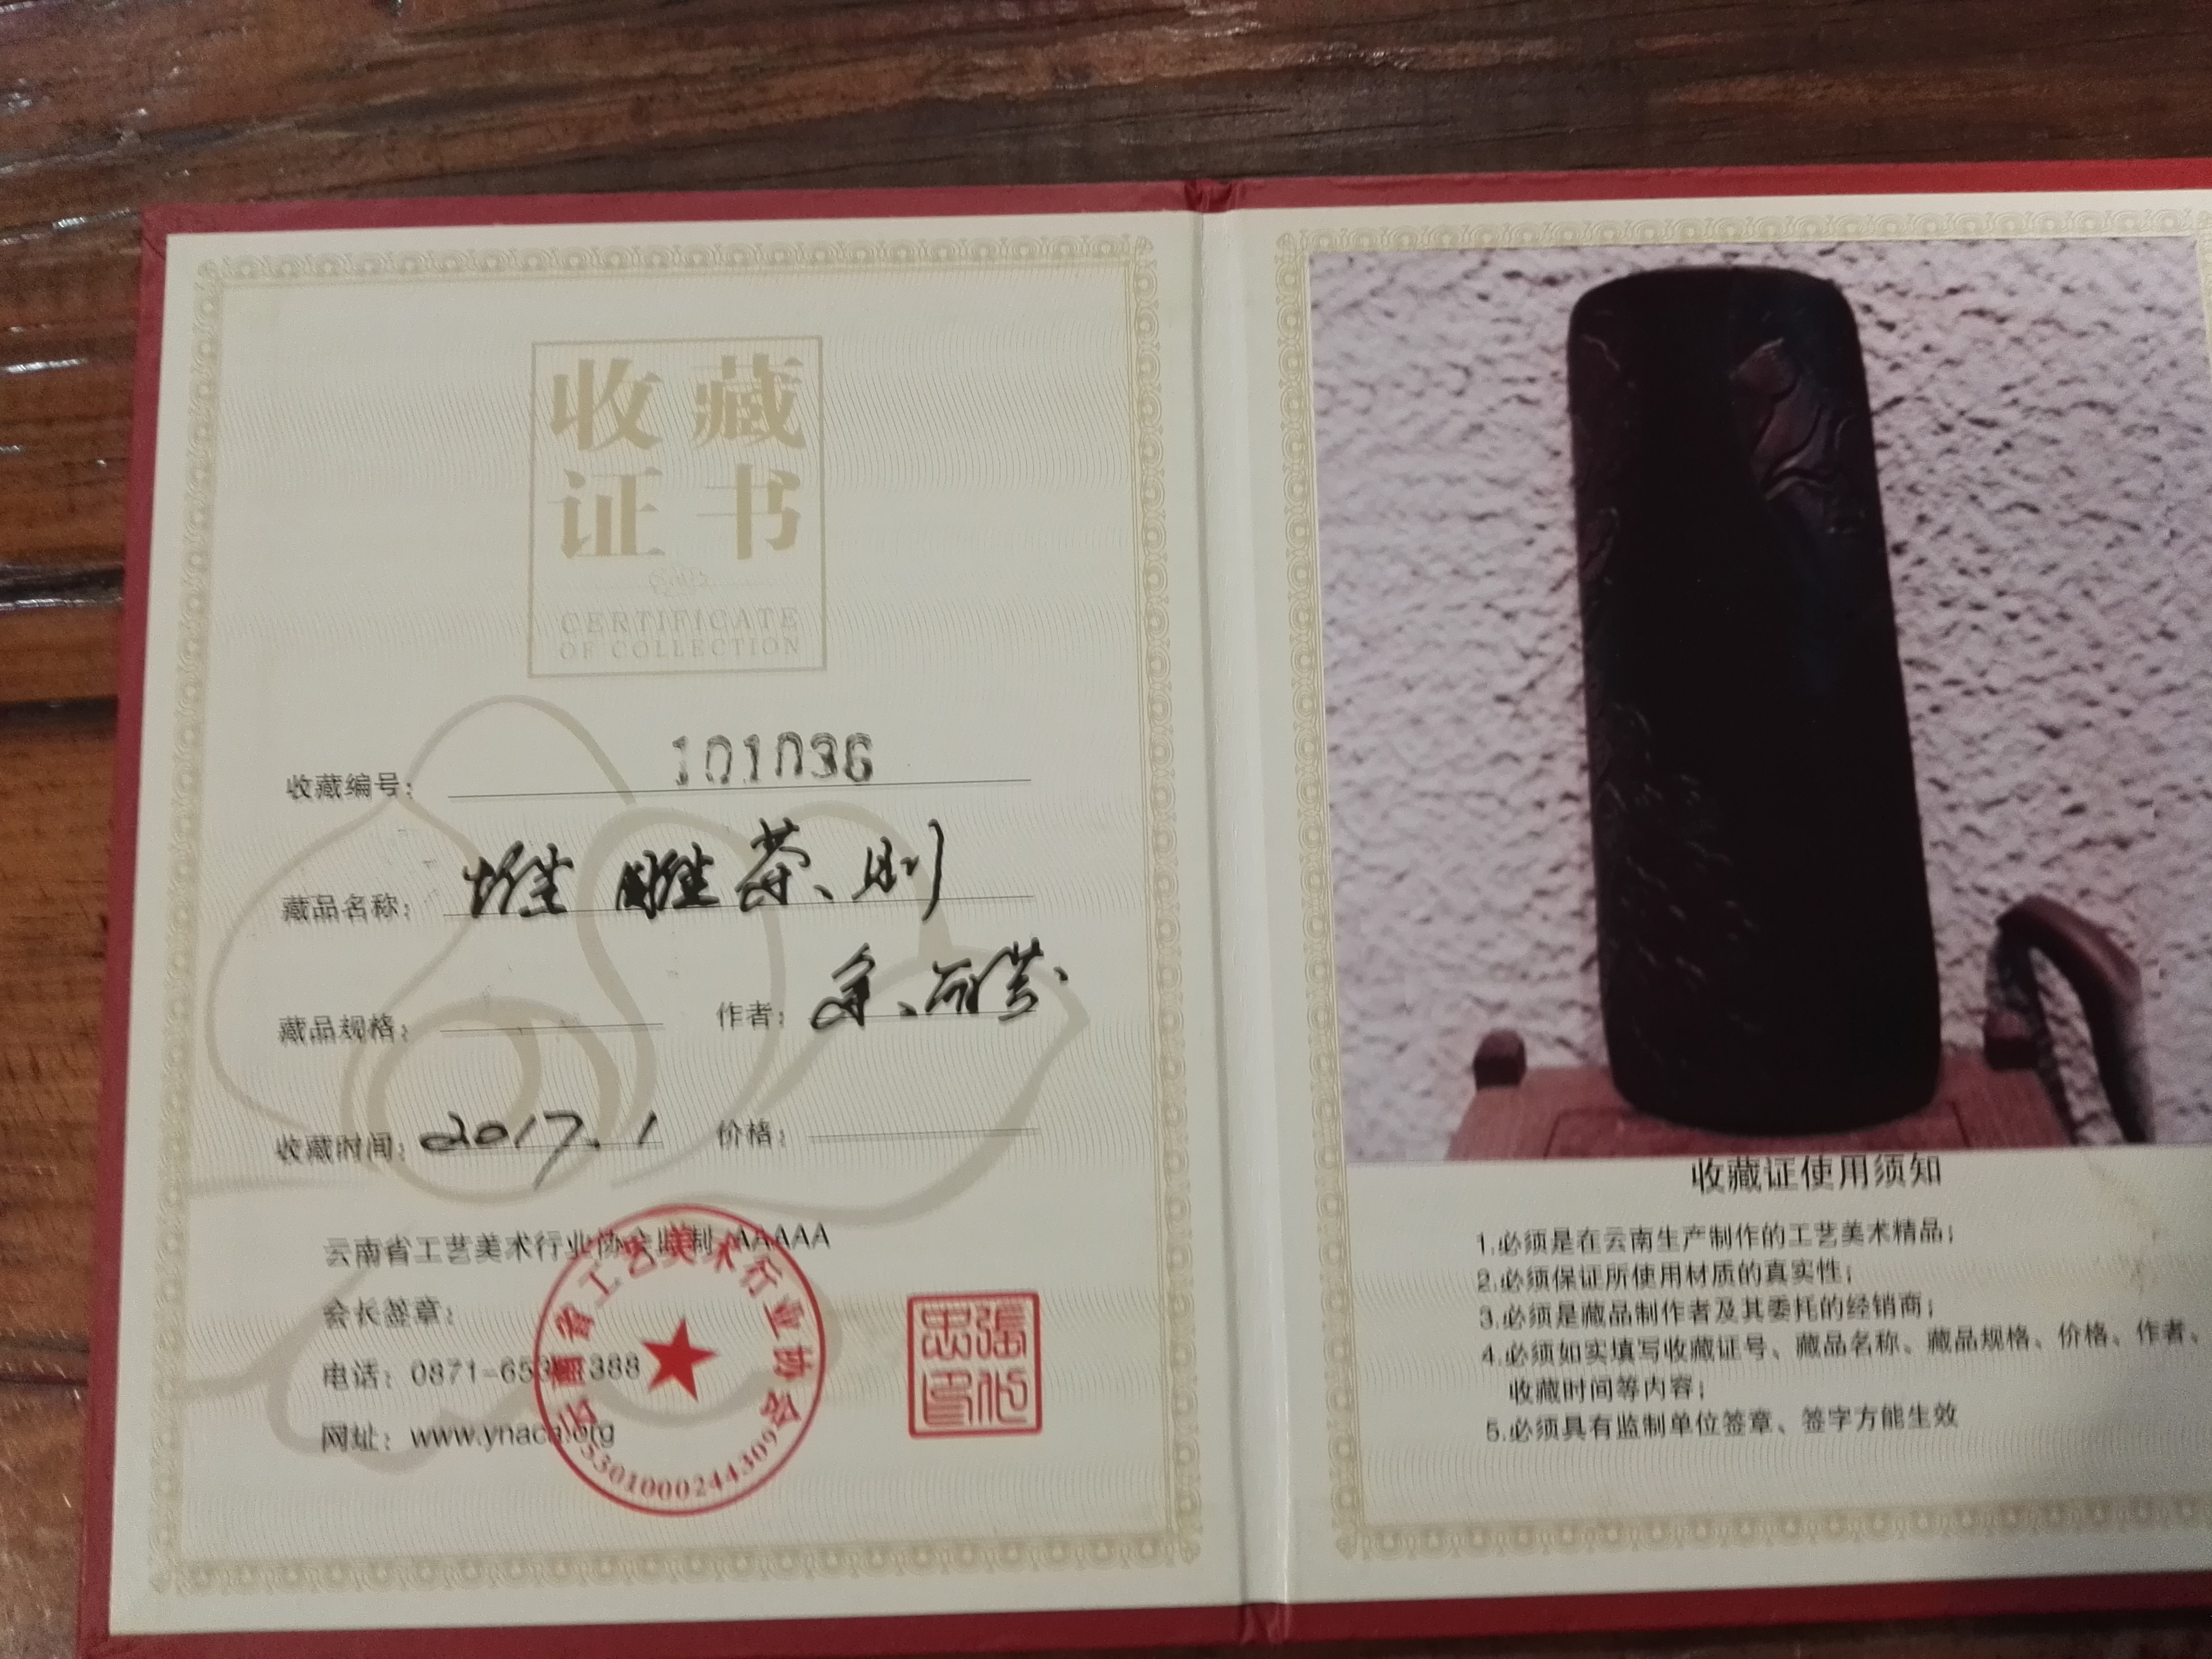 收藏
证书
CERTIFICATE
OF COLLECTION
收藏编号： 101036
藏品名称： 雕茶则
藏品规格： 作者：
收藏时间：2017.1 价格：
云南省工艺美术行业协会监制 AAAAA
会长签章：
电话：0871-65 388
网址：www.ynaca.org
云南省工艺美术行业协会
5301000244309
收藏证使用须知
1.必须是在云南生产制作的工艺美术精品；
2.必须保证所使用材质的真实性；
3.必须是藏品制作者及其委托的经销商；
4.必须如实填写收藏证号、藏品名称、藏品规格、价格、作者、
收藏时间等内容；
5.必须具有监制单位签章、签字方能生效